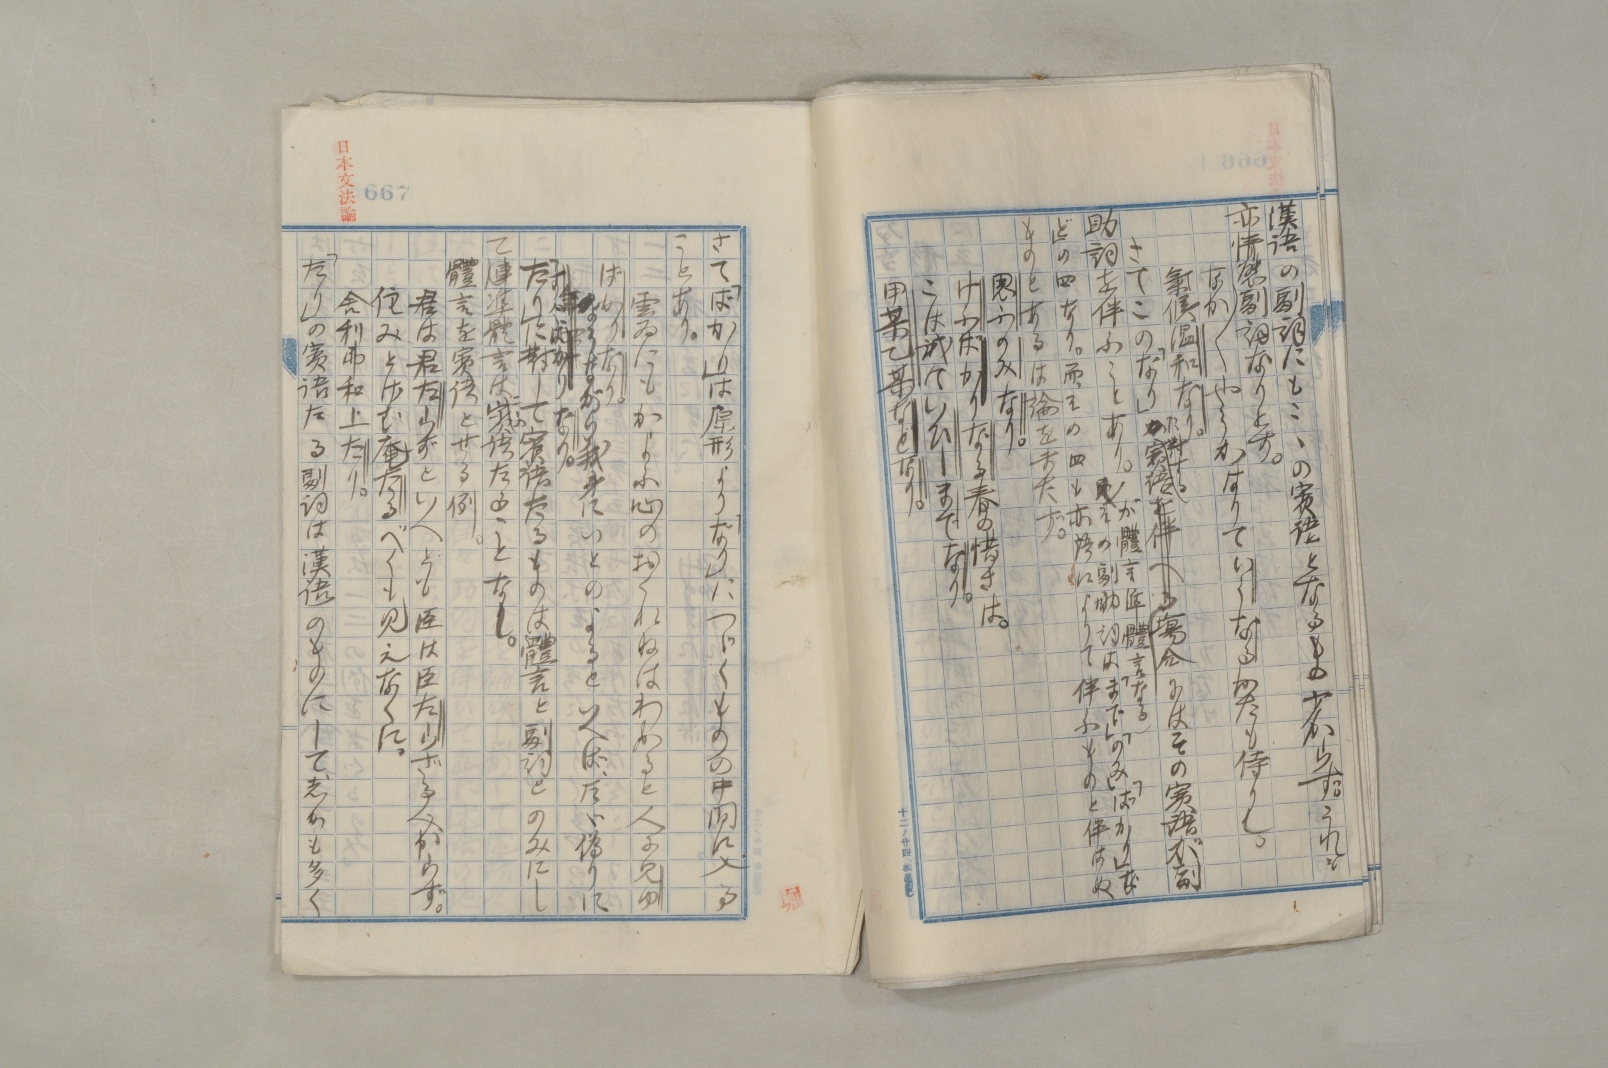 漢語の副詞にもこゝの賓語となるもの少からず。これ
亦情態副詞なりとす。
なか〱やうかはりていうなるかたも侍りし。
氣候温和なり。
さてこの「なり」が賓語を伴へる場合にはその賓語が副
助詞を伴ふことあり。その副助詞は「まで」「のみ」「ばかり」な
が體言準體言なる
どの四なり。而、その四も亦語によりて伴ふものと伴はぬ
ものとあるは論をまたず。
思ふのみなり。
けふばかりなる春の惜さは。
こは誠ていひしまでなり。
甲某乙某などなり。
日本文法論
667
さて「ばかり」は原形より「なり」につゞくものの中間に入る
ことあり。
雲ゐにもかよふ心のおくれねはわかると人に見ゆ
ばかりなり。
いとのよるといへば、たゞ偽りに
ばかりなり。
「たり」に對して賓語たるものは體言と副詞とのみにし
て連準體言は賓語たることなし。
體言を賓語とせる例。
君は君たらずといへども臣は臣たらずんばあるべからず。
住みとげむ庵たるべくも見えなくに。
舎利弗和上たり。
「たり」の賓語たる副詞は漢語のものにして志かも多く